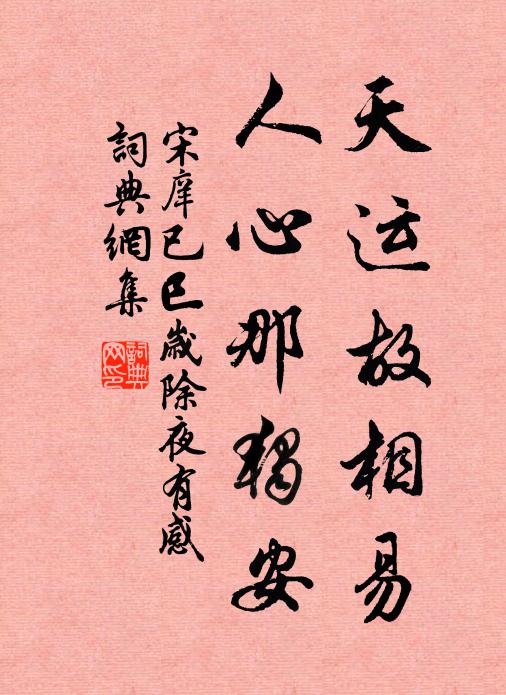 天运故相易
人心那獨安
宋庠己巳歲除夜有感
詞典網集
詞典
网印